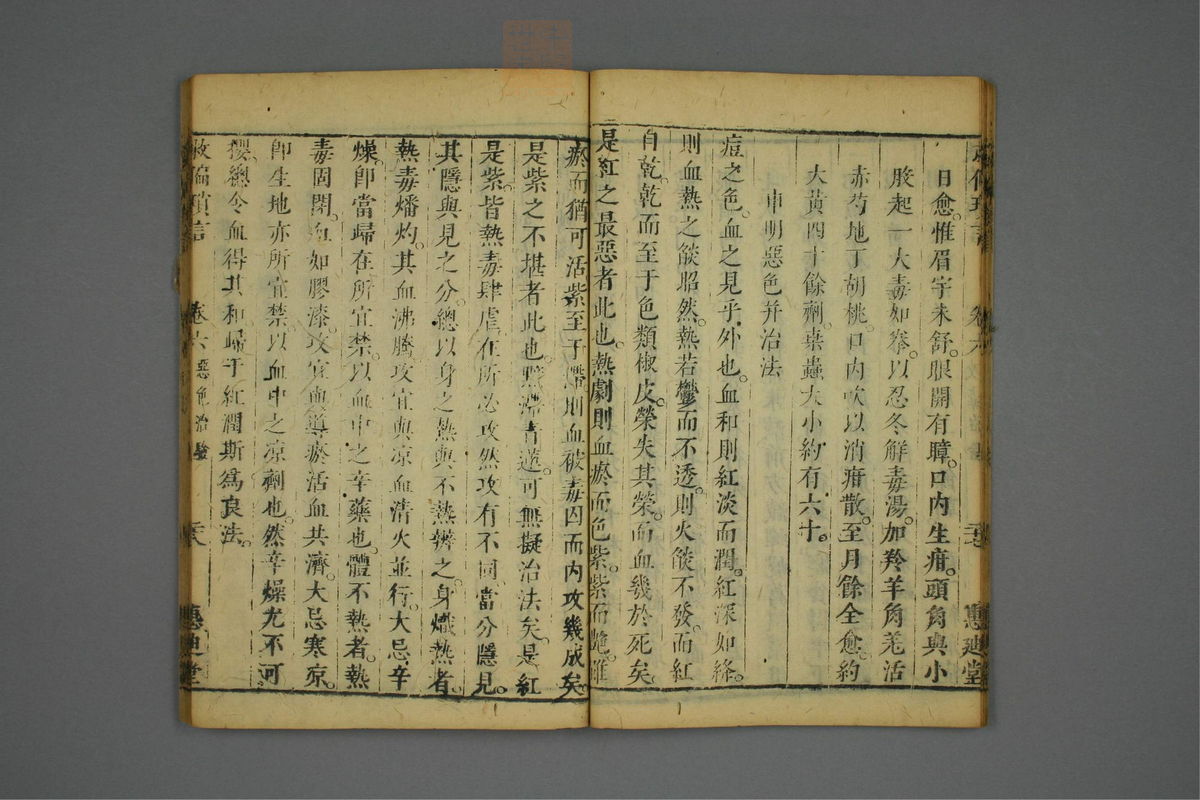 日愈。惟眉宇未舒。眼開有障。口内生疳。頭角與小
腹起一大毒如拳。以忍冬解毒湯。加羚羊角羌活
赤芍地丁胡桃。口内吹以消疳散。至月餘全愈。約
大黄四十餘劑。桑蟲大小約有六十。
申明惡色并治法
痘之色。血之見乎外也。血和則紅淡而潤。紅深如絳。
則血熱之燄昭然。熱若鬱而不透。則火燄不發。而紅
自乾。乾而至于色類椒皮。榮失其榮。而血幾於死矣。
是紅之最惡者此也。熱劇則血瘀而色紫。紫而艷。雖
瘀而猶可活。紫至于滯。則血被毒囚而内攻幾成矣。
是紫之不堪者此也。黙滯青蓮。可無擬治法矣。是紅
是紫。皆熱毒肆虐。在所必攻。然攻有不同。當分隱見。
其隱與見之分。總以身之熱與不熱辨之。身熾熱者。
熱毒燔灼。其血沸騰。攻宜與凉血清火並行。大忌辛
燥。卽當歸在所宜禁。以血中之辛藥也。體不熱者。熱
毒固閉。血如膠漆。攻宜與導瘀活血共濟。大忌寒凉。
卽生地亦所宜禁。以血中之凉劑也。然辛燥尤不可
攖。總令血得其和。歸于紅潤。斯爲良法。
救偏瑣言
卷六 惡色治驗
二八
惠迪堂